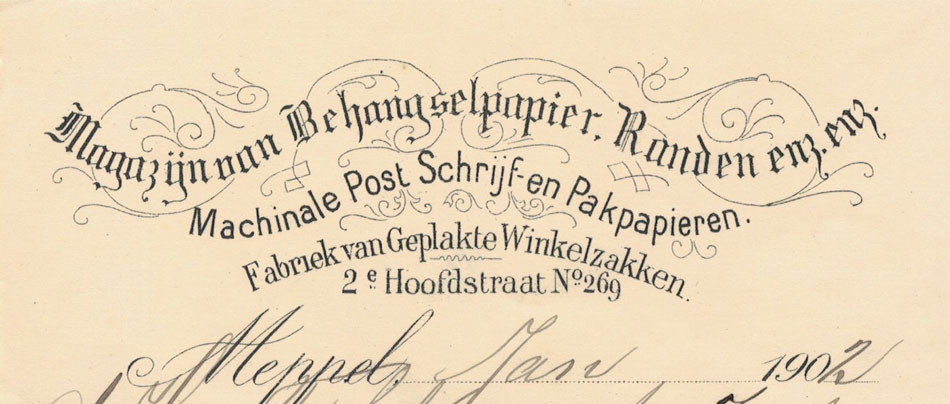 Magazijn van Behangselpapier. Randen enz. enz.
Machinale Post Schrijf- en Pakpapieren.
Fabriek van Geplakte Winkelzakken.
2e Hoofdstraat No 269
Meppel, Jan 1902